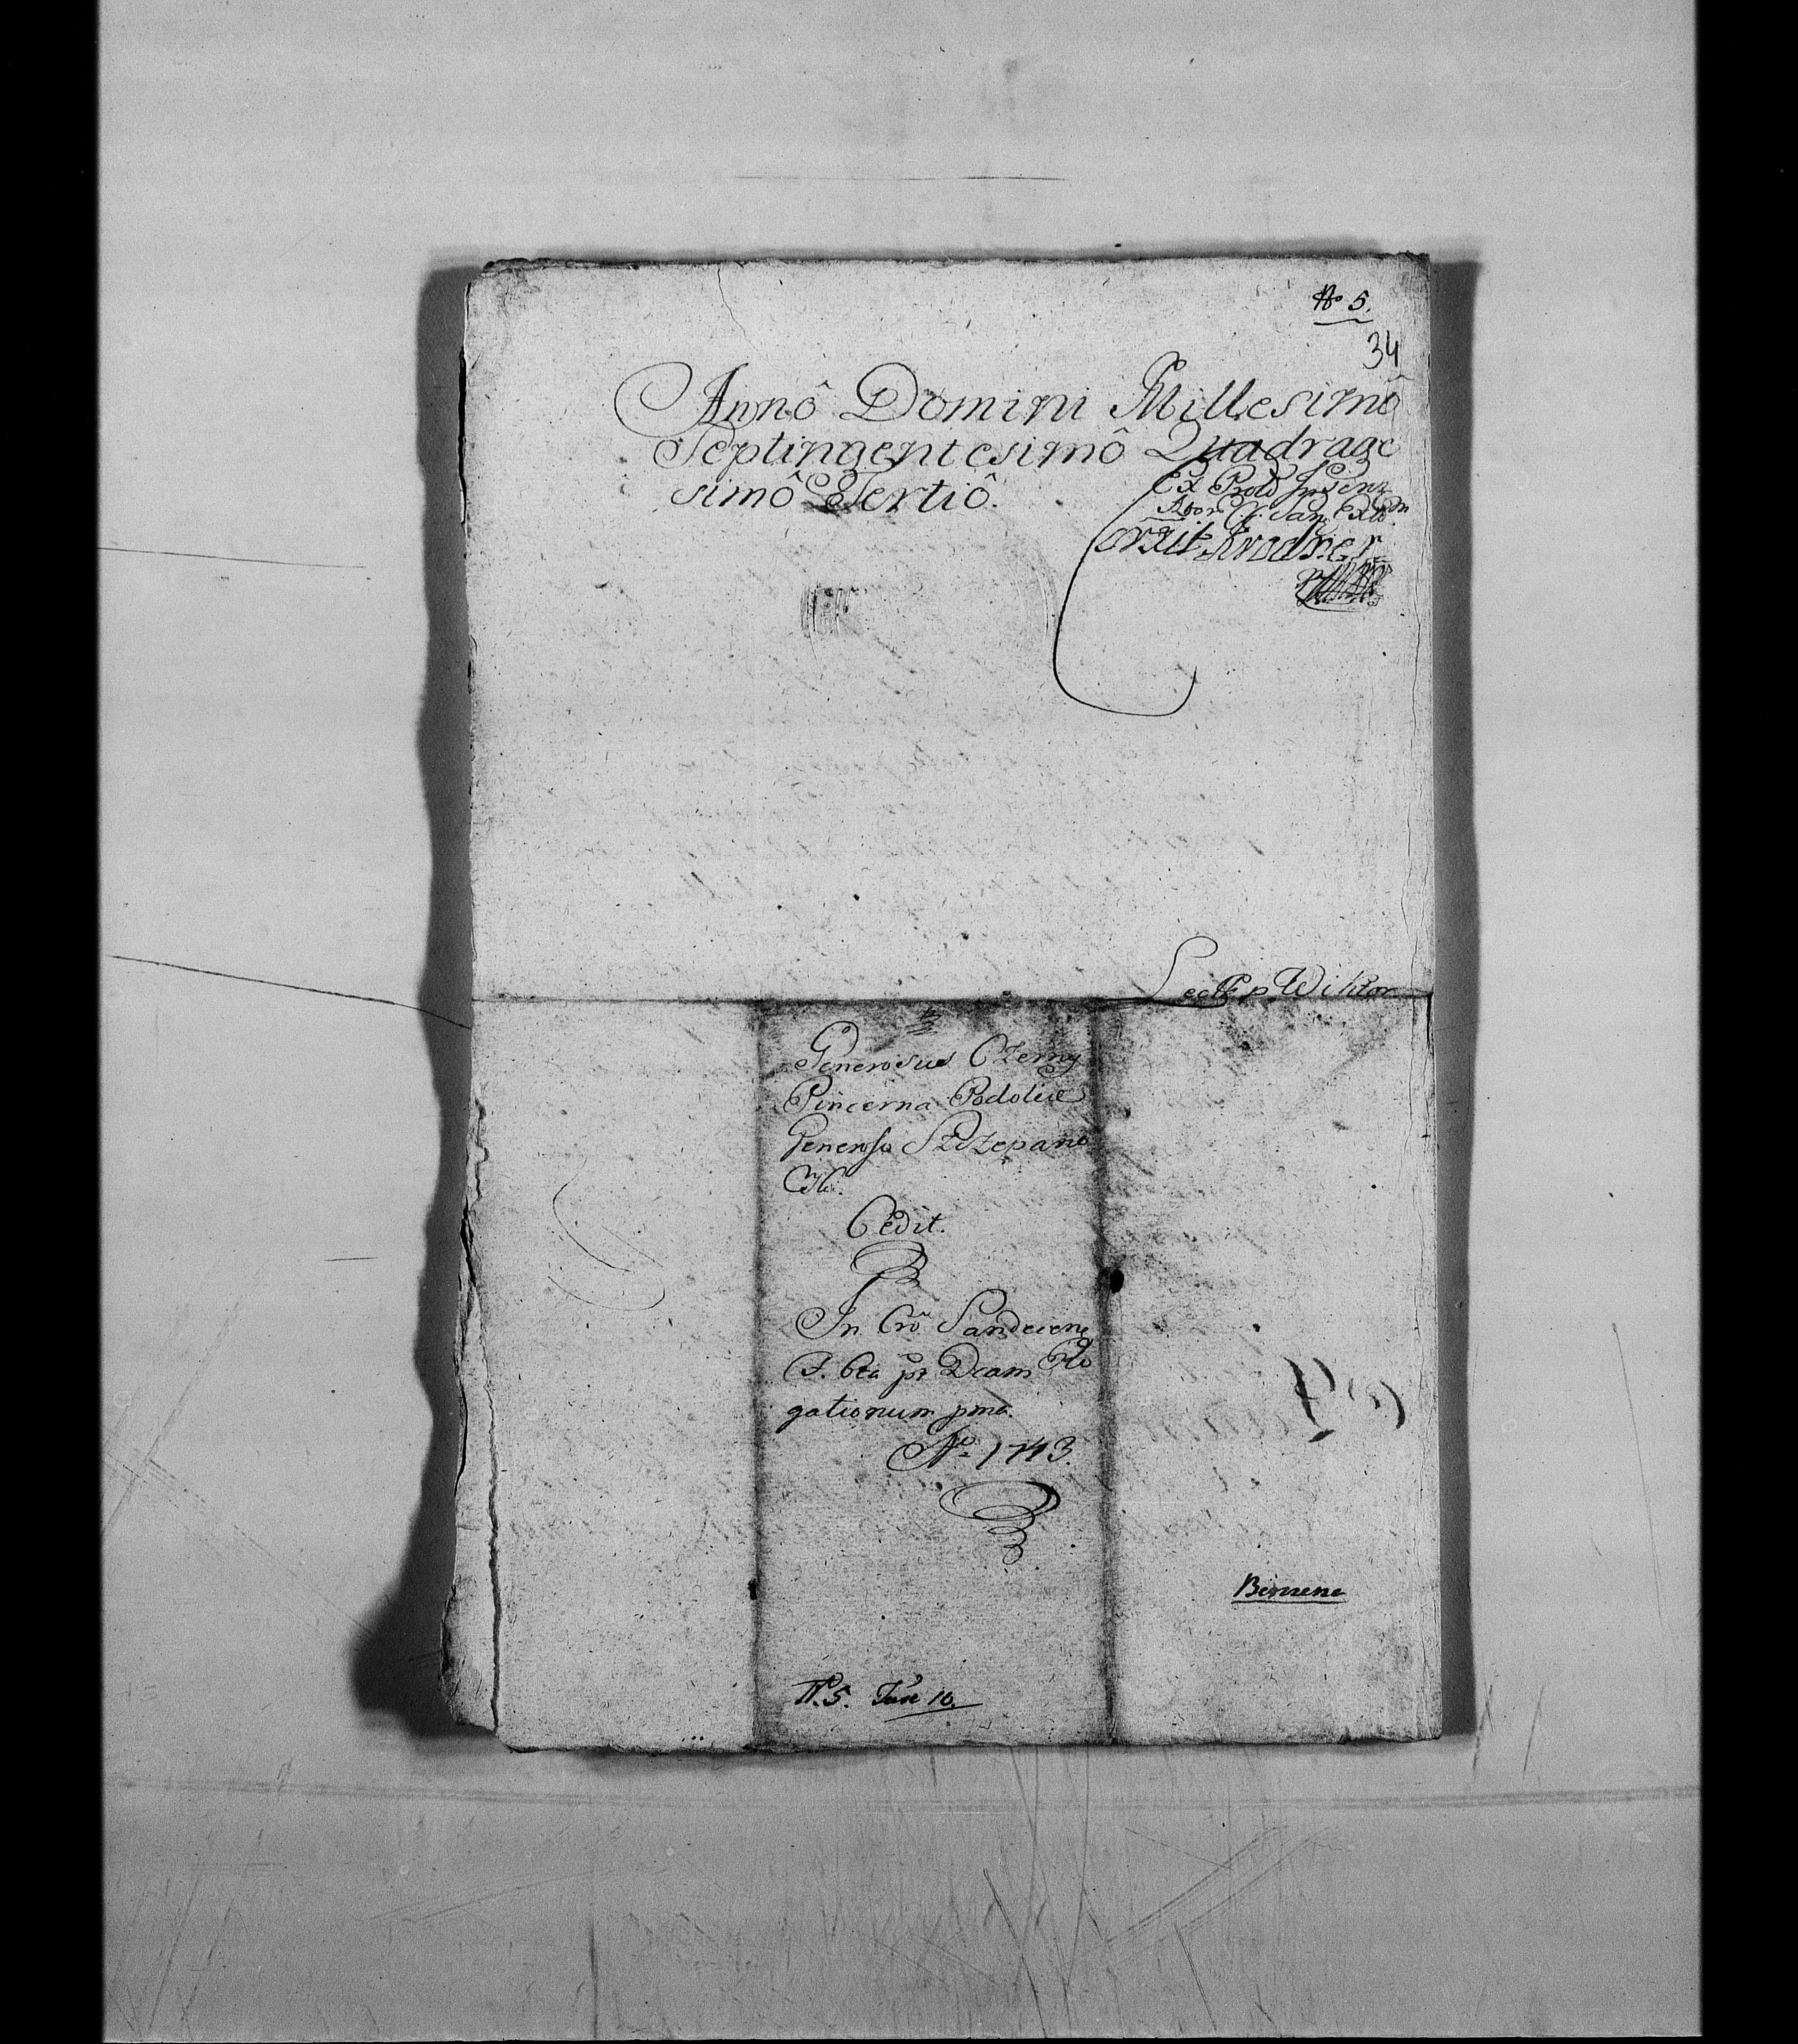 No 5.
34
Annô Domini Millesimô
Septingentesimô Quadrage
simô Tertiô.
Ex Proto
Corxit
Lect p Wiktor
Generosus Czerny
Pincerna Podoliæ
Generoso Szczepano
Cedit.
In Crô Sandecen
F. 6ta pt Dcam Ro
gationum pma.
Aº 1743.
Bienene
N. 5. Fasc 10.